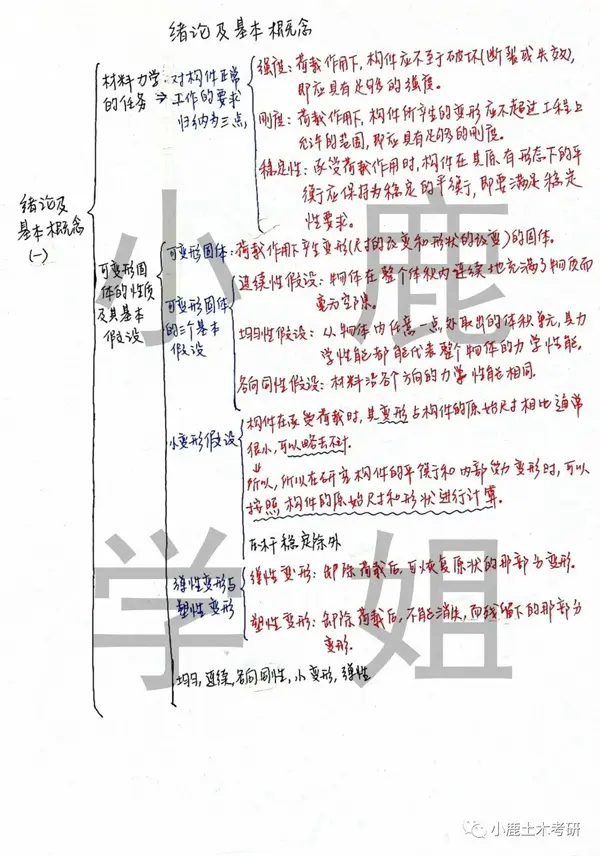 绪论及基本概念
绪论及
基本概念
(一)
材料力学
的任务 ⇒
对构件正常
工作的要求
归纳为三点
强度：荷载作用下，构件应不至于破坏(断裂或失效)，
即应具有足够的强度。
刚度：荷载作用下，构件所产生的变形应不超过工程上
允许的范围，即应具有足够的刚度。
稳定性：承受荷载作用时，构件在其原有形态下的平
衡应保持为稳定的平衡，即要满足稳定
性要求。
可变形固
体的性质
及其基本
假设
可变形固体：荷载作用下产生变形(尺寸的改变和形状的改变)的固体。
可变形固体
的三个基本
假设
连续性假设：物体在整个体积内连续地充满了物质而
毫无空隙。
均匀性假设：从物体内任意一点处取出的体积单元，其力
学性能都能代表整个物体的力学性能。
各向同性假设：材料沿各个方向的力学性能相同。
小变形假设
构件在承受荷载时，其变形与构件的原始尺寸相比通常
很小，可以略去不计.
⇓
所以，所以在研究构件的平衡和内部受力变形时，可以
按照构件的原始尺寸和形状进行计算。
压杆稳定除外
弹性变形与
塑性变形
弹性变形：卸除荷载后，可恢复原状的那部分变形.
塑性变形：卸除荷载后，不能消失，而残留下的那部分
变形.
均匀，连续，各向同性，小变形，弹性
小鹿
学姐
小鹿土木考研